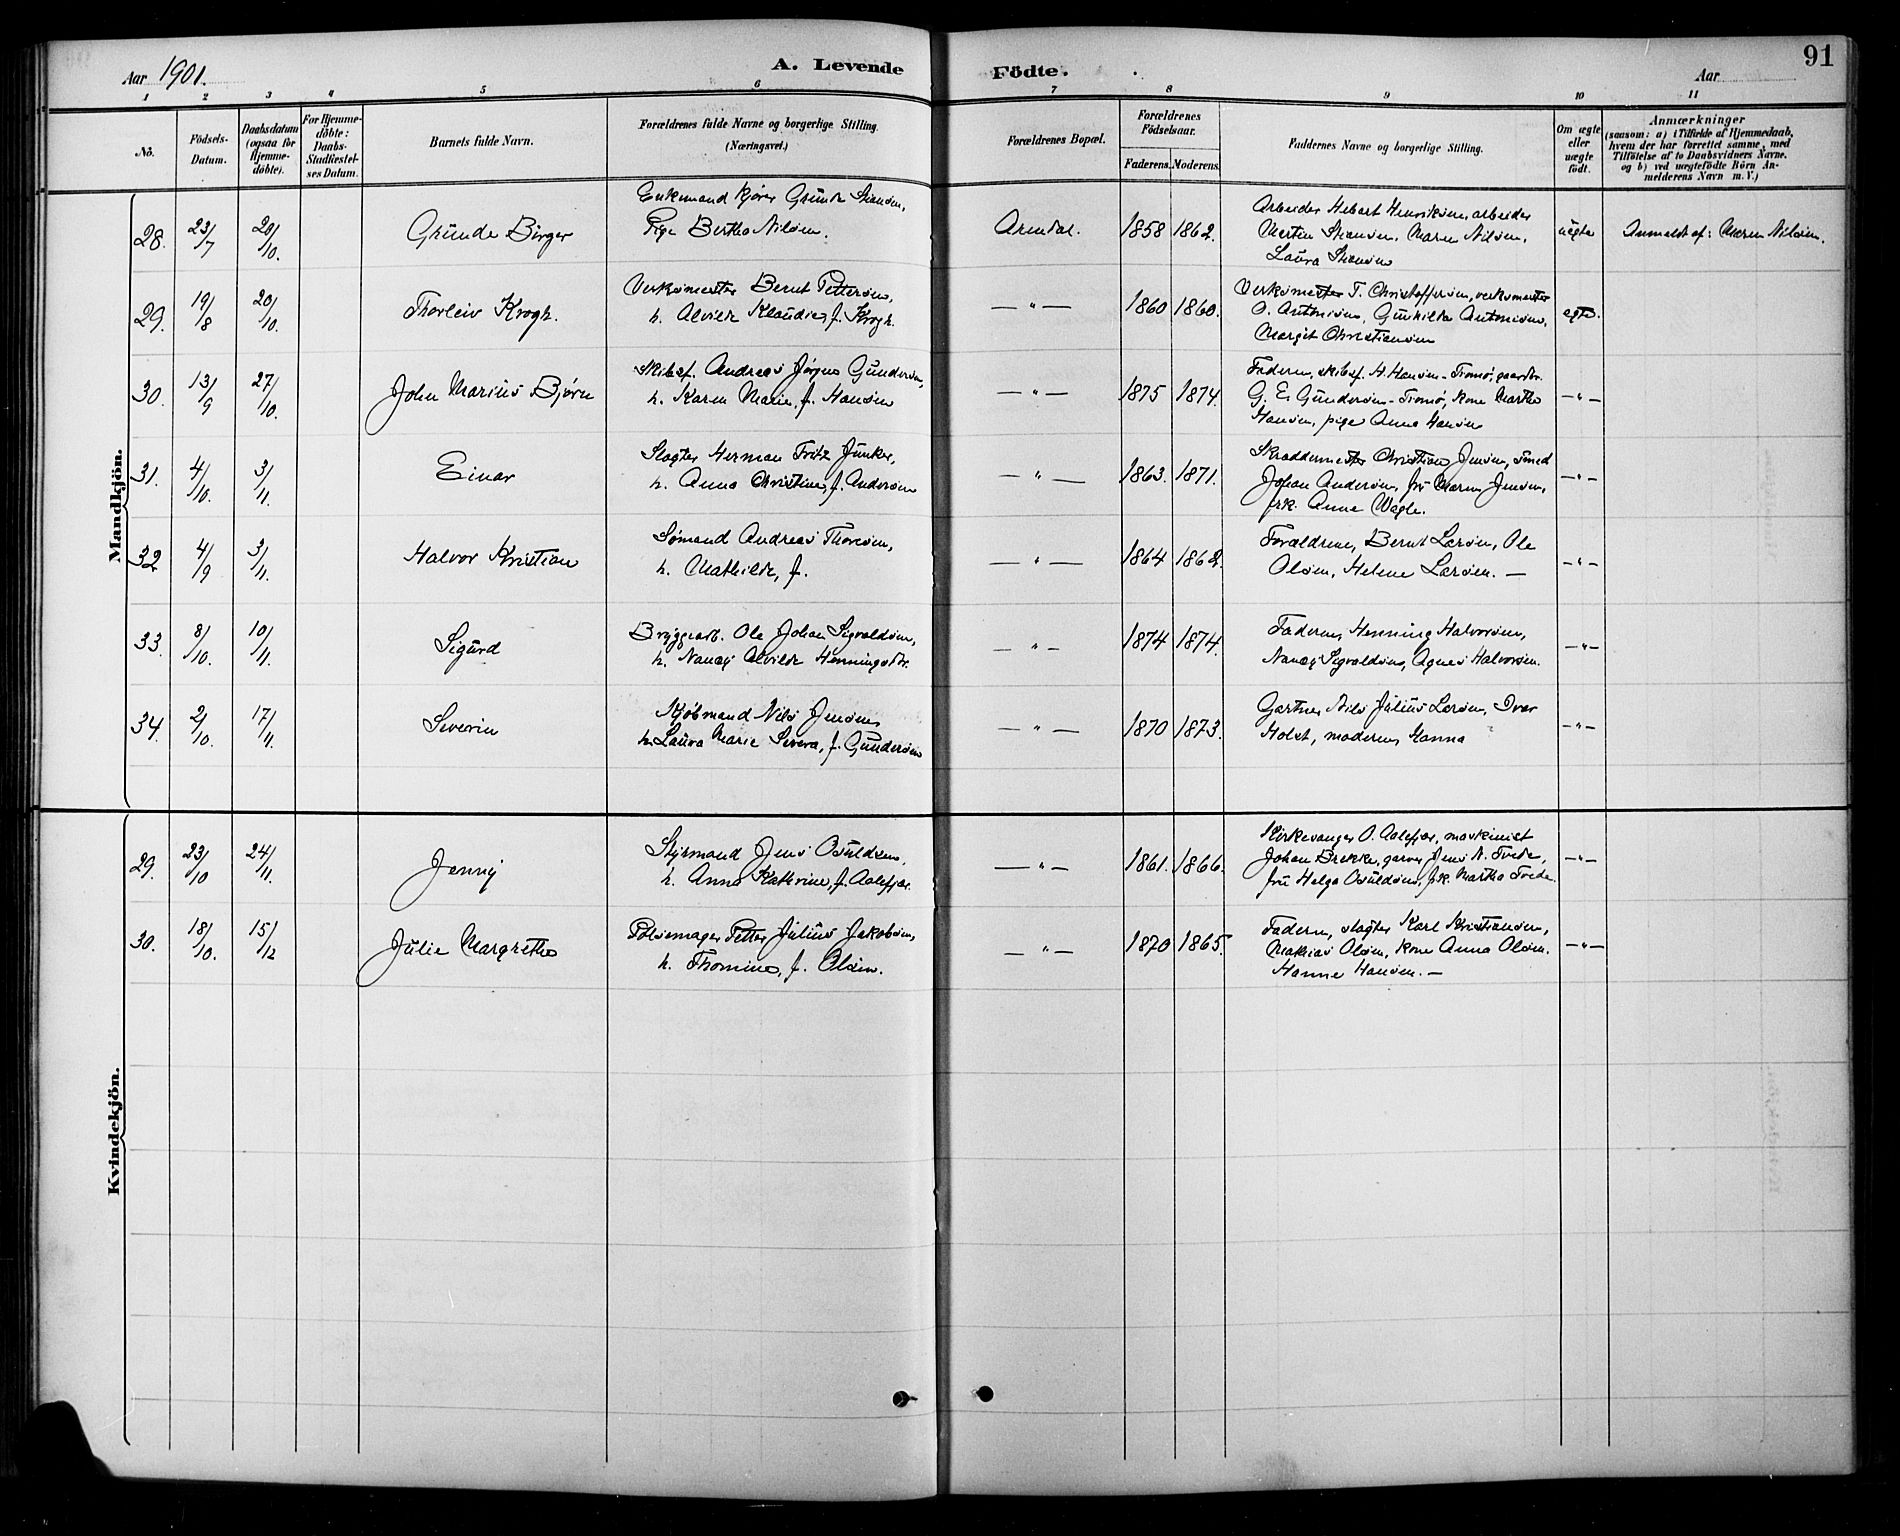 Aar 1901. A. Levende Födte. Aar 91
1 2 3 4 5 6 7 8 9 10 11
No. Fødsels-Datum. Daabsdatum (ogsaa for Hjemme-döbte). For Hjemme-döbte: Daabs-Stadfæstel-ses Datum. Barnets fulde Navn. Forældrenes fulde Navne og borgerlige Stilling. (Næringsvei.) Forældrenes Bopæl. Forældrenes Födselsaar. Faderens. Moderens. Faddernes Navne og borgerlige Stilling. Om ægte eller uægte födt. Anmærkninger (saasom: a) i Tilfælde af Hjemmedaab, hvem der har forrettet samme, med Tilföielse af to Daabsvidners Navne. og b) ved uægtefödte Börn An-melderens Navn m. V.)
Mandkjön.
28. 23/7 20/10. Gründe Birger
Enkemand kjører Gründe
Pige Bertha Nilsen.
Arendal. 1858 1862.
Arbeider Hebert Henriksen, arbeider
Martin Maren Nilsen,
Laura
uegte Anmeldt af: Maren Nilsen.
29. 19/8 20/10. Thorleiv Krogh.
Verksmester Bernt Pettersen,
h. Alvilde Klaudine, f. Krogh.
— " — 1860 1860.
Verksmester T. Christoffersen, verksmester
O. Antonisen, Gunhilda Antonisen,
Margit Christiansen
egte.
30. 13/9 27/10. John Marius Bjørn
Skibsf. Andreas Jørgen Gundersen,
h. Karen Marie, f. Hansen
— " — 1875 1874.
Faderen, skibsf. H. Hansen - Tromø, gaardbr.
G. E. Gundersen - Tromø, kone Marthe
Hansen, pige Anna Hansen
— " —
31. 4/10. 3/11. Einar
Slagter Herman Fritz Junker,
h. Anna Christine, f. Andersen
— " — 1863. 1871.
Skræddermester Christian Jensen, smed
Johan Andersen, fru Maren Jensen,
frk. Anne Wagle.
— " —
32 4/9 3/11. Halvor Kristian
Sømand Andreas Thoresen,
h. Mathilde, f.
— " — 1864 1862.
Forældrene, Bernt Larsen, Ole
Olsen, Helene Larsen. —
— " —
33. 8/10. 10/11. Sigurd
Bryggearb. Ole Johan Sigvaldsen,
h. Nancy Alvilde Henningsdtr.
— " — 1874 1874.
Faderen, Henning Halvorsen,
Nancy Sigvaldsen, Agnes Halvorsen.
— " —
34. 2/10. 17/11. Severin
Kjøbmand Nils Jensen
h. Laura Marie Severa, f. Gundersen
— " — 1870 1873.
Gartner Nils Julius Larsen, Ivar
Holst, moderen, Hanna
— " —
Kvindekjön.
29. 23/10 24/11. Jenny
Styrmand Jens Osuldsen,
h. Anna Kathrine, f. Aalefjær.
— " — 1861. 1866.
Kirkesanger O. Aalefjær, maskinist
Johan Brekke, garver Jens A. Tvede,
fru Helga Osuldsen, frk. Martha Tvede.
— " —
30. 18/10. 15/12 Julie Margrethe
Pølsemager Petter Julius Jakobsen,
h. Thomine, f. Olsen.
— " — 1870 1865.
Faderen, slagter Karl Kristiansen,
Mathias Olsen, kone Anna Olsen.
Hanne Hansen. —
— " —